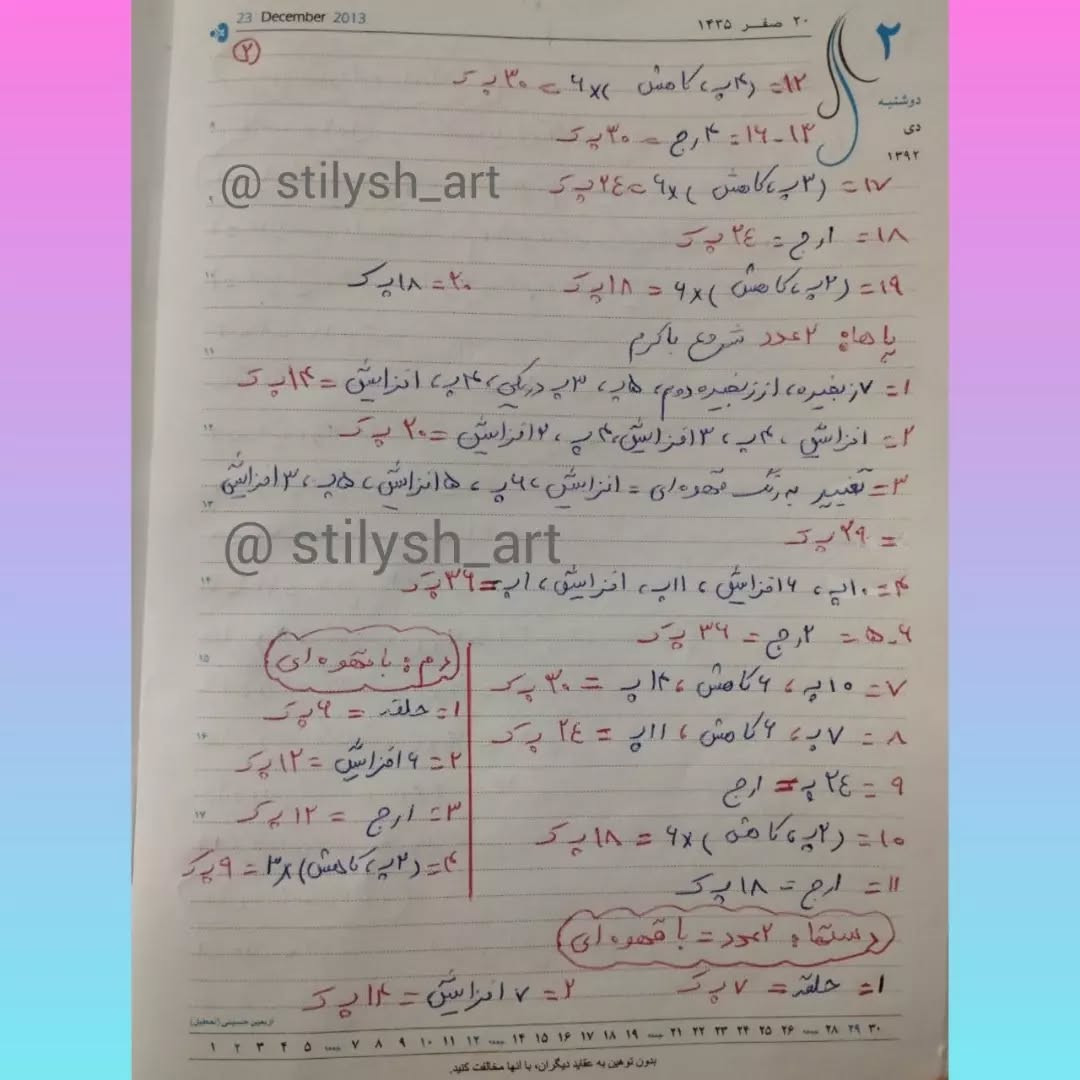 23 December 2013
۲۰ صفر ۱۴۳۵
۲
دوشنبه
دی
۱۳۹۲
۲
۱۲= (۴پ، کاهش )×۶ = ۳۰پ ک
۱۳-۱۶= ۴رج = ۳۰پ ک
@ stilysh_art
۱۷= (۳پ، کاهش )×۶=۲٤پ ک
۱۸= ۱رج= ۲٤پ ک
۱۹= (۲پ، کاهش )×۶ = ۱۸پ ک
۲۰= ۱۸پ ک
پاها: ۲عدد شروع با کرم
۱= ۷زنجیره، از زنجیره دوم، ۵پ، ۳پ دریکی، ۴پ، افزایش =۱۴پ ک
۲= افزایش ، ۴پ، ۳افزایش، ۴پ، ۲افزایش =۲۰ پ ک
۳= تغییر به رنگ قهوه‌ای = افزایش، ۶پ، ۵افزایش، ۵پ، ۳افزایش
= ۲۹پ ک
@ stilysh_art
۴= ۱۰پ، ۶افزایش، ۱۱پ، افزایش، ۱پ=۳۶پ ک
۵-۶= ۲رج = ۳۶ پ ک
۷= ۱۰پ، ۶کاهش، ۱۴پ = ۳۰پ ک
۸= ۷پ، ۶کاهش، ۱۱پ = ۲٤ پ ک
۹ = ۲٤پ = ۱رج
۱۰= (۲پ، کاهش )×۶ = ۱۸پ ک
۱۱= ۱رج = ۱۸پ ک
دم: با قهوه‌ای
۱= حلقه = ۶پ ک
۲= ۶افزایش =۱۲پ ک
۳= ۱رج = ۱۲پ ک
۴= (۲پ، کاهش)×۳ = ۹پ ک
دستها: ۲عدد= با قهوه‌ای
۱= حلقه = ۷پ ک
۲= ۷افزایش =۱۴پ ک
اربعین حسینی (تعطیل)
۱ ۲ ۳ ۴ ۵ ۷ ۸ ۹ ۱۰ ۱۱ ۱۲ ۱۴ ۱۵ ۱۶ ۱۷ ۱۸ ۱۹ ۲۱ ۲۲ ۲۳ ۲۴ ۲۵ ۲۶ ۲۸ ۲۹ ۳۰
بدون توهین به عقاید دیگران، با آنها مخالفت کنید.